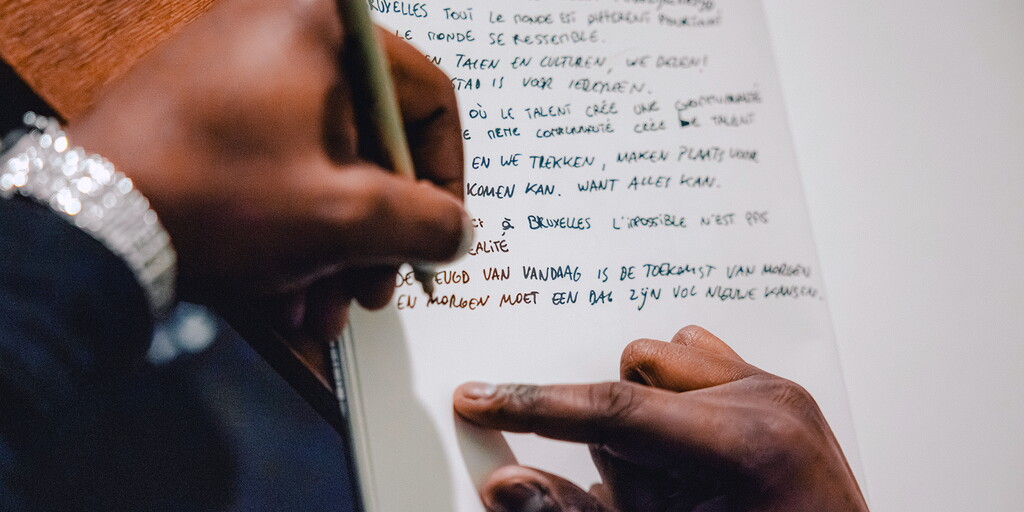 BRUXELLES TOUT LE MONDE EST DIFFÉRENT POURTANT
LE MONDE SE RESSEMBLE.
EN TALEN EN CULTUREN, WE DELEN!
STAD IS VOOR IEDEREEN.
OÙ LE TALENT CRÉE UNE COMMUNAUTÉ
MEME COMMUNAUTÉ CRÉE LE TALENT
EN WE TREKKEN, MAKEN PLAATS VOOR
KOMEN KAN. WANT ALLES KAN.
à BRUXELLES L'IMPOSSIBLE N'EST PAS
EALITÉ
DE JEUGD VAN VANDAAG IS DE TOEKOMST VAN MORGEN
EN MORGEN MOET EEN DAG ZIJN VOL NIEUWE KANSEN.